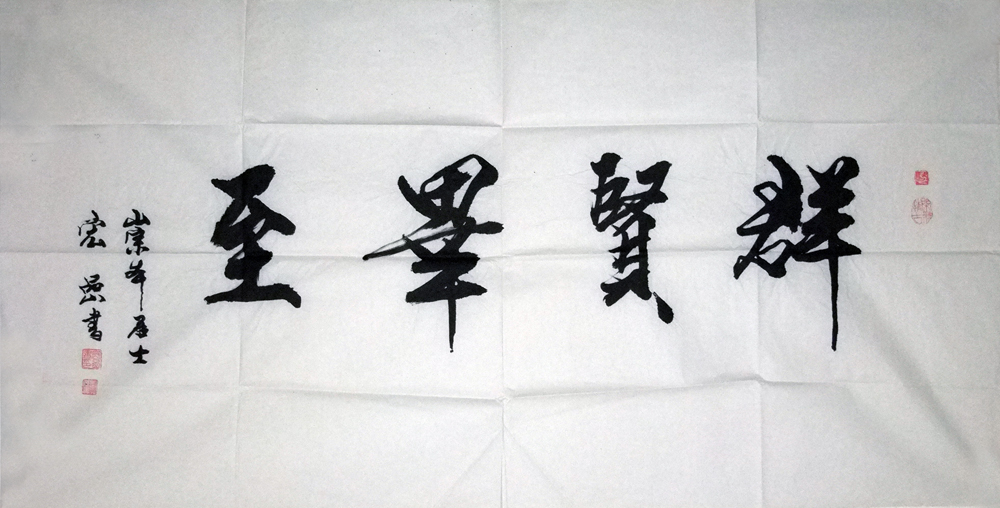 群賢畢至
崇岑居士
宏嵒書